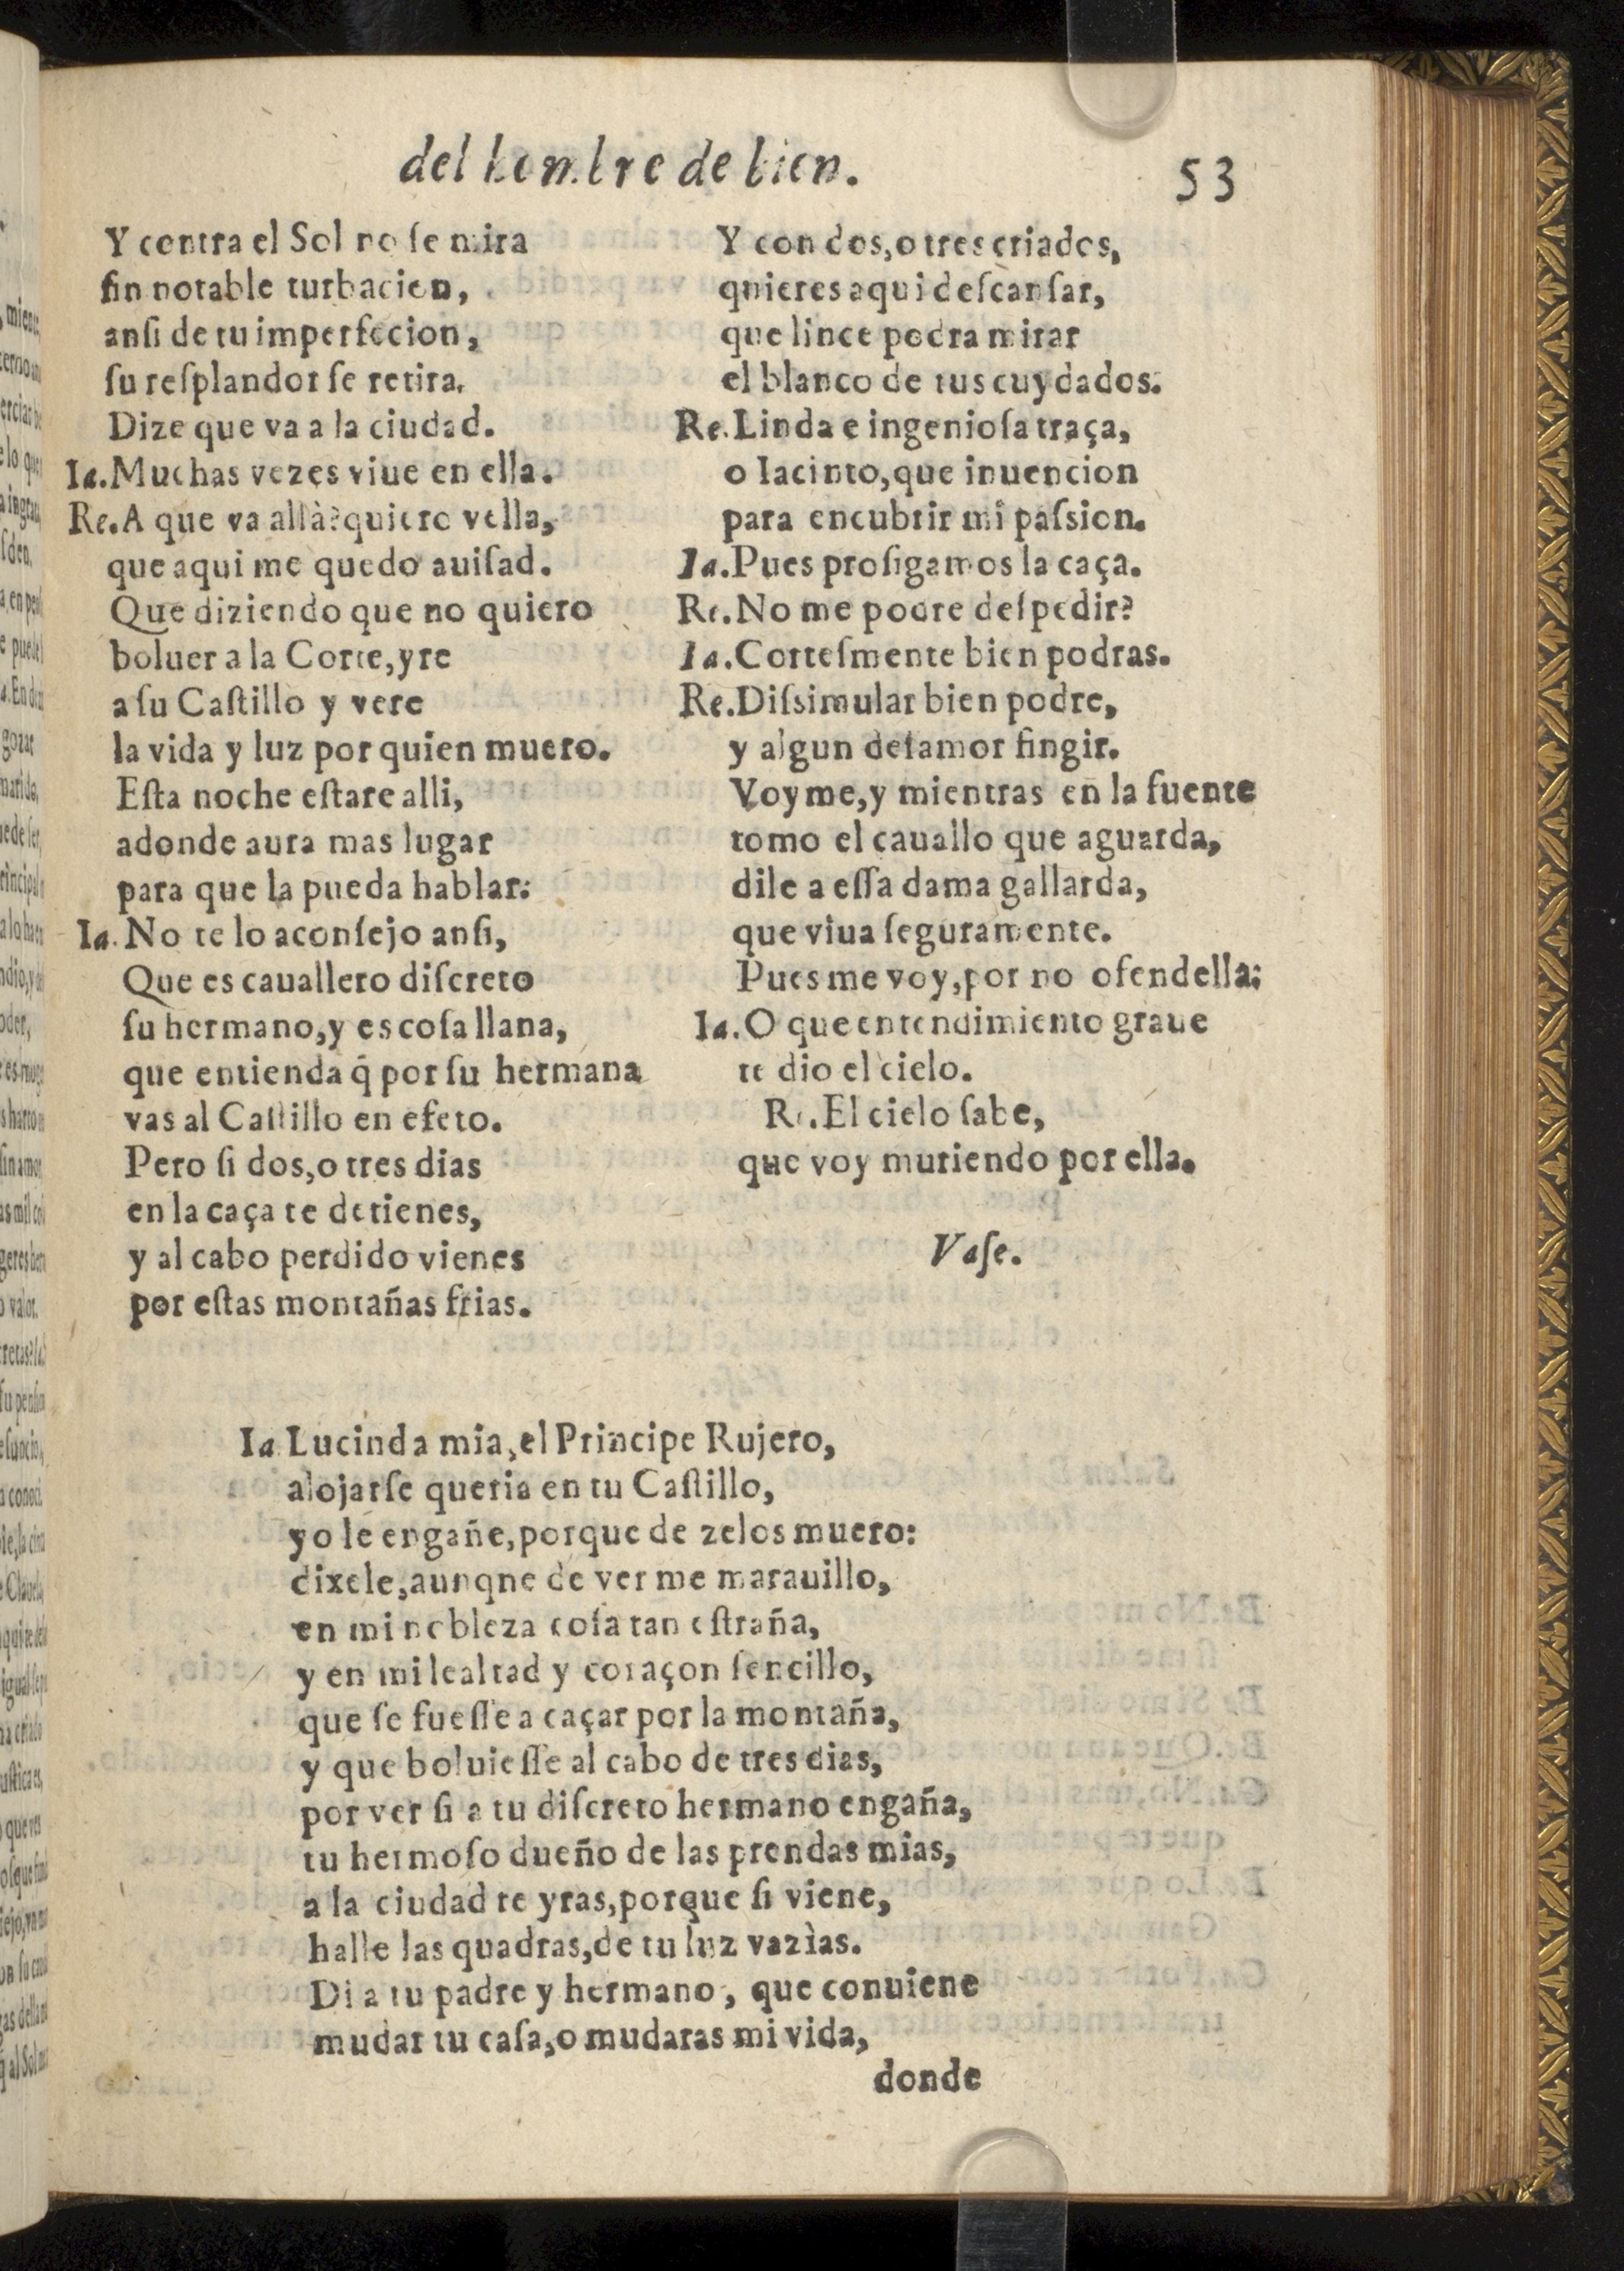 del hombre de bien.
53
Y contra el Sol no ſe mira
ſin notable turbacion,
anſi de tu imperfecion,
ſu reſplandor ſe retira.
Dize que va a la ciudad.
Ia. Muchas vezes viue en ella.
Re. A que va allà? quiero vella,
que aqui me quedo auiſad.
Que diziendo que no quiero
boluer a la Corte, yre
a ſu Caſtillo y vere
la vida y luz por quien muero.
Eſta noche eſtare alli,
adonde aura mas lugar
para que la pueda hablar.
Ia. No te lo aconſejo anſi,
Que es cauallero diſcreto
ſu hermano, y es coſa llana,
que entienda q̃ por ſu hermana
vas al Caſtillo en efeto.
Pero ſi dos, o tres dias
en la caça te detienes,
y al cabo perdido vienes
por eſtas montañas frias.
Y con dos, o tres criados,
qnieres aqui deſcanſar,
que lince podra mirar
el blanco de tus cuydados.
Re. Linda e ingenioſa traça,
o Iacinto, que inuencion
para encubrir mi paſsion.
Ia. Pues proſigamos la caça.
Re. No me podre deſpedir?
Ia. Corteſmente bien podras.
Re. Diſsimular bien podre,
y algun deſamor fingir.
Voyme, y mientras en la fuente
tomo el cauallo que aguarda,
dile a eſſa dama gallarda,
que viua ſeguramente.
Pues me voy, por no ofendella:
Ia. O que entendimiento graue
te dio el cielo.
Re. El cielo ſabe,
que voy muriendo por ella.
Vaſe.
Ia. Lucinda mia, el Principe Rujero,
alojarſe queria en tu Caſtillo,
yo le engañe, porque de zelos muero:
dixele, aunqne de ver me marauillo,
en mi nobleza coſa tan eſtraña,
y en mi lealtad y coraçon ſencillo,
que ſe fueſſe a caçar por la montaña,
y que boluieſſe al cabo de tres dias,
por ver ſi a tu diſcreto hermano engaña,
tu hermoſo dueño de las prendas mias,
a la ciudad te yras, porque ſi viene,
halle las quadras, de tu luz vazìas.
Di a tu padre y hermano, que conuiene
mudar tu caſa, o mudaras mi vida,
donde